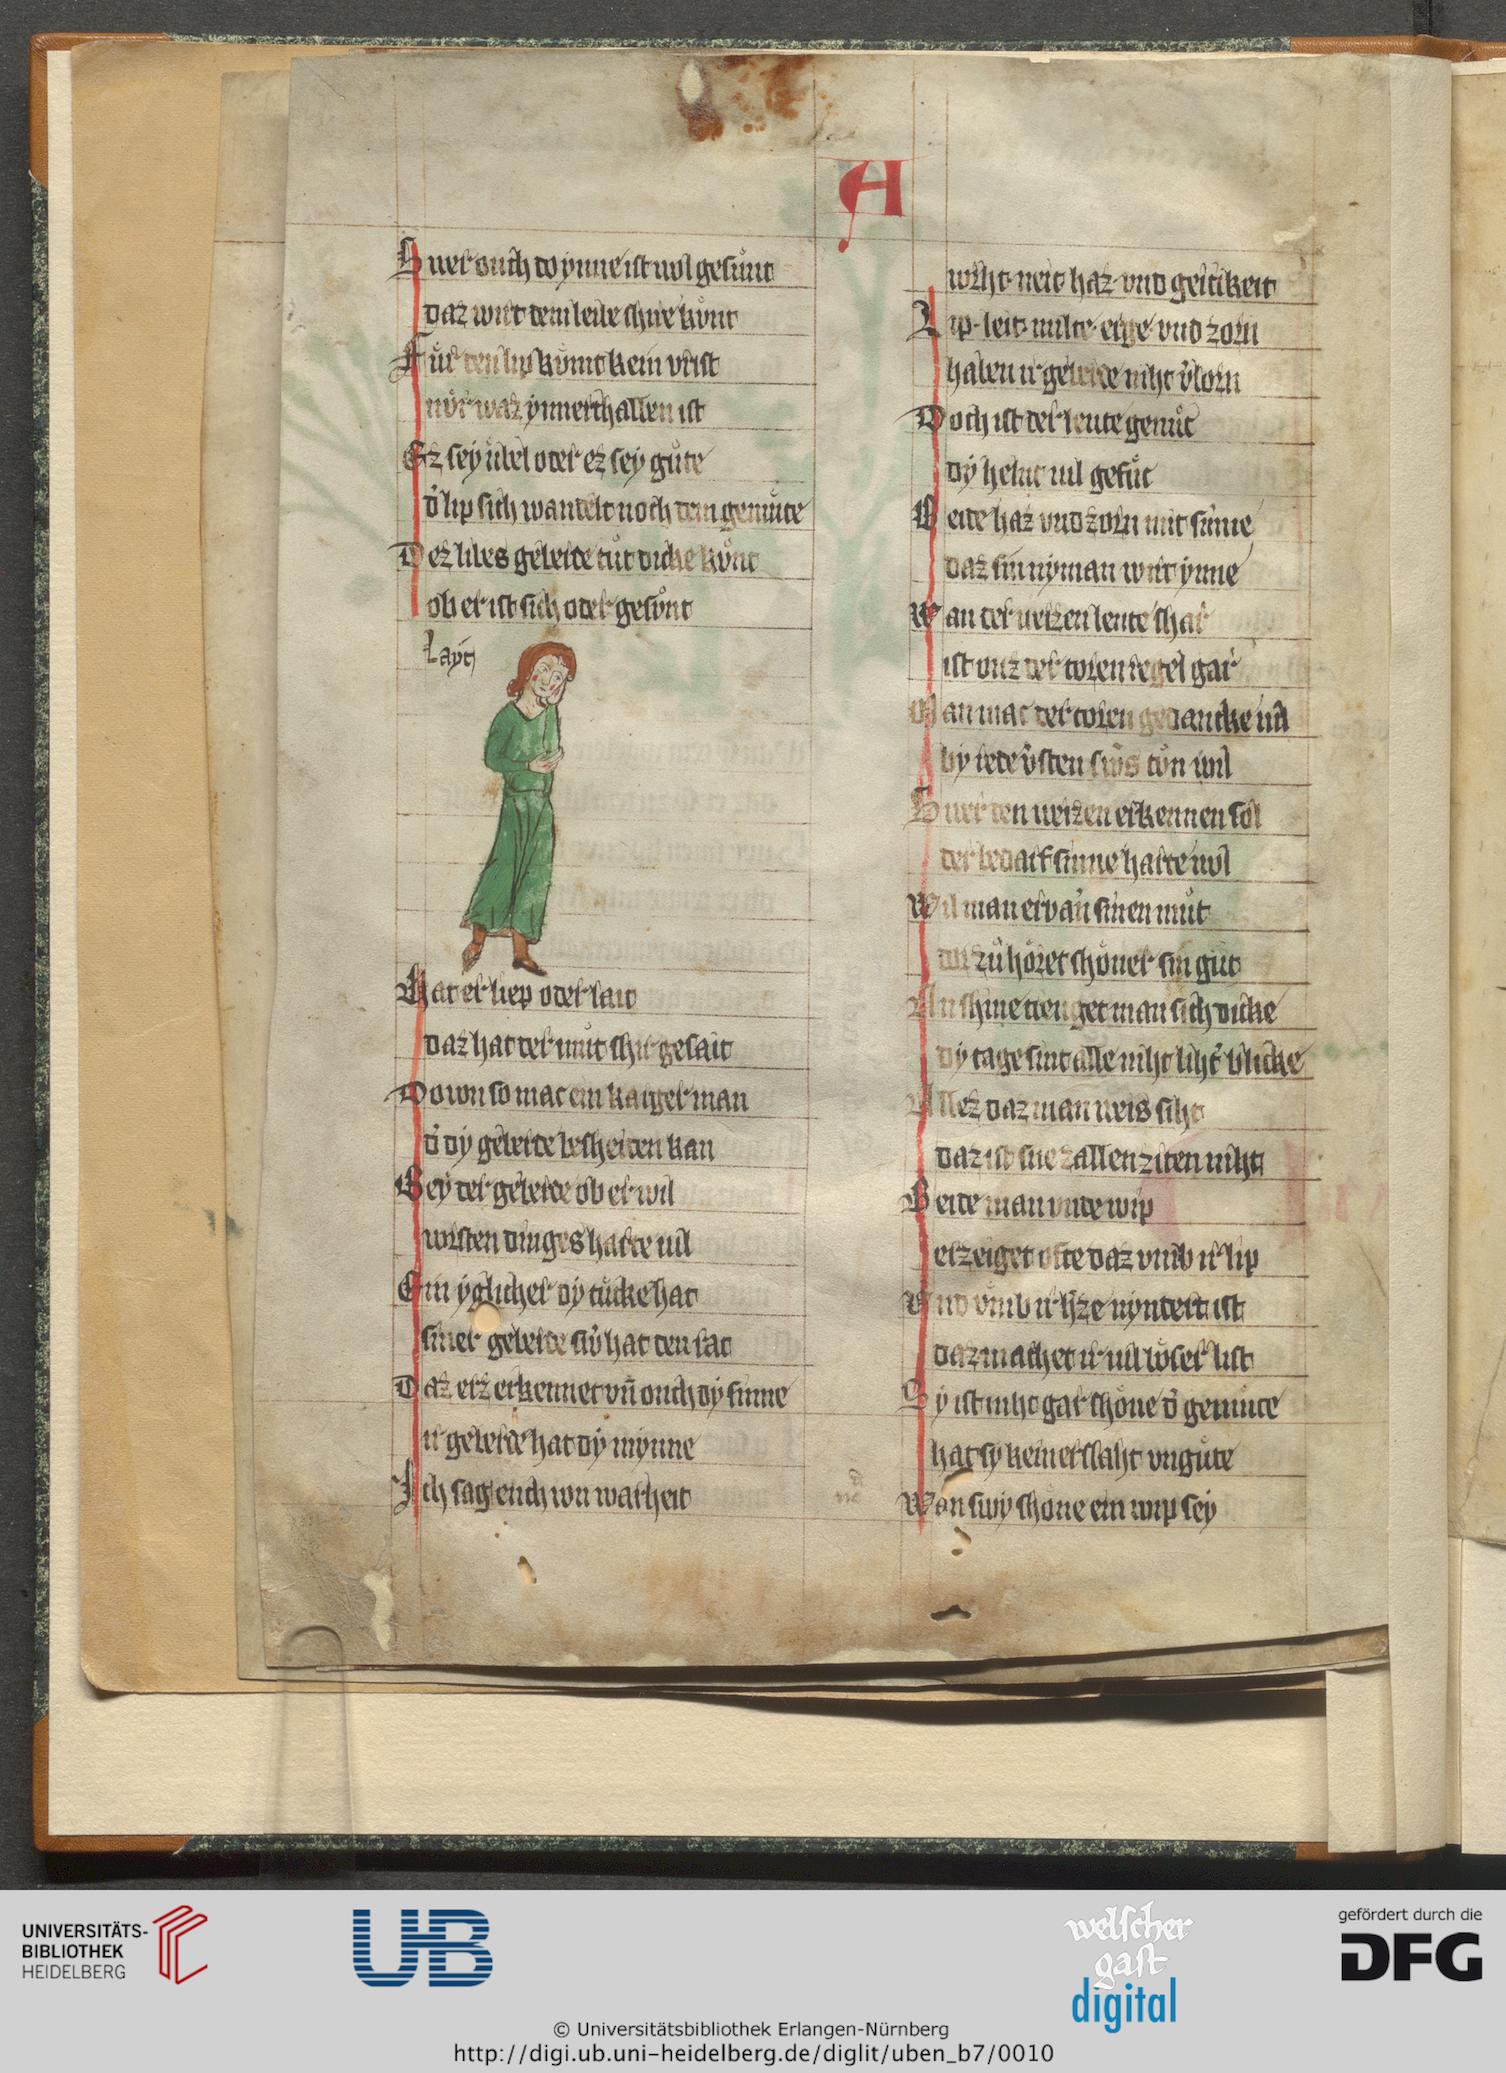 A
Swer ouch do ynne ist wol gesunt
daz wirt dem leibe schire kunt
Für den lip kumt kein vrist
nür waz ynnerthalben ist
Ez sey übel oder ez sey gute
d' lip sich wandelt noch dem gemüte
Dez libes geberde tut dicke kunt
ob er ist sich oder gesunt
Layt
Hat er liep oder lait
daz hat der mut schir gesait
Dovon so mac ein karger man
d' dy geberde bescheiden kan
Bey der geberde ob er wil
versten dinges harte uil
Ein yglicher dy tücke hat
siner geberde
Daz erz erkennet vn ouch dy sinne
ir geberde hat dy mynne
Ich sag euch von warheit
vorht neit haz vnd geitikeit
Lip leit milte erge vnd zorn
haben ir geberde niht v'lorn
Doch ist der leute genuc
dy helnt uil gefuc
Beide haz vnd zorn mit sinne
daz sin nyman wirt ynne
Wan der weizen leute shar
ist vnz der toren segel gar
Man mac der toren gedancke uil
by rede v'sten swes ton wil
Swer den weizen erkennen sol
der bedarf sinne harte wol
Wil man ervarn sinen mut
dar zu höret schöner sin gut
An shine treuget man sich dicke
dy tage sint alle niht liht' blicke
Allez daz man weis siht
daz ist sne zallen ziten niht
Beide man vnde wip
erzeiget ofte daz vmb ir lip
Vnd vmb ir h'ze nyntert ist
daz machet ir uil böser list
Sy ist niht gar schöne d' gemüte
hat sy keiner slaht vngüte
Wan swy schöne ein wip sey
UNIVERSITÄTS-
BIBLIOTHEK
HEIDELBERG
UB
welscher
gast
digital
gefördert durch die
DFG
© Universitätsbibliothek Erlangen-Nürnberg
http://digi.ub.uni-heidelberg.de/diglit/uben_b7/0010